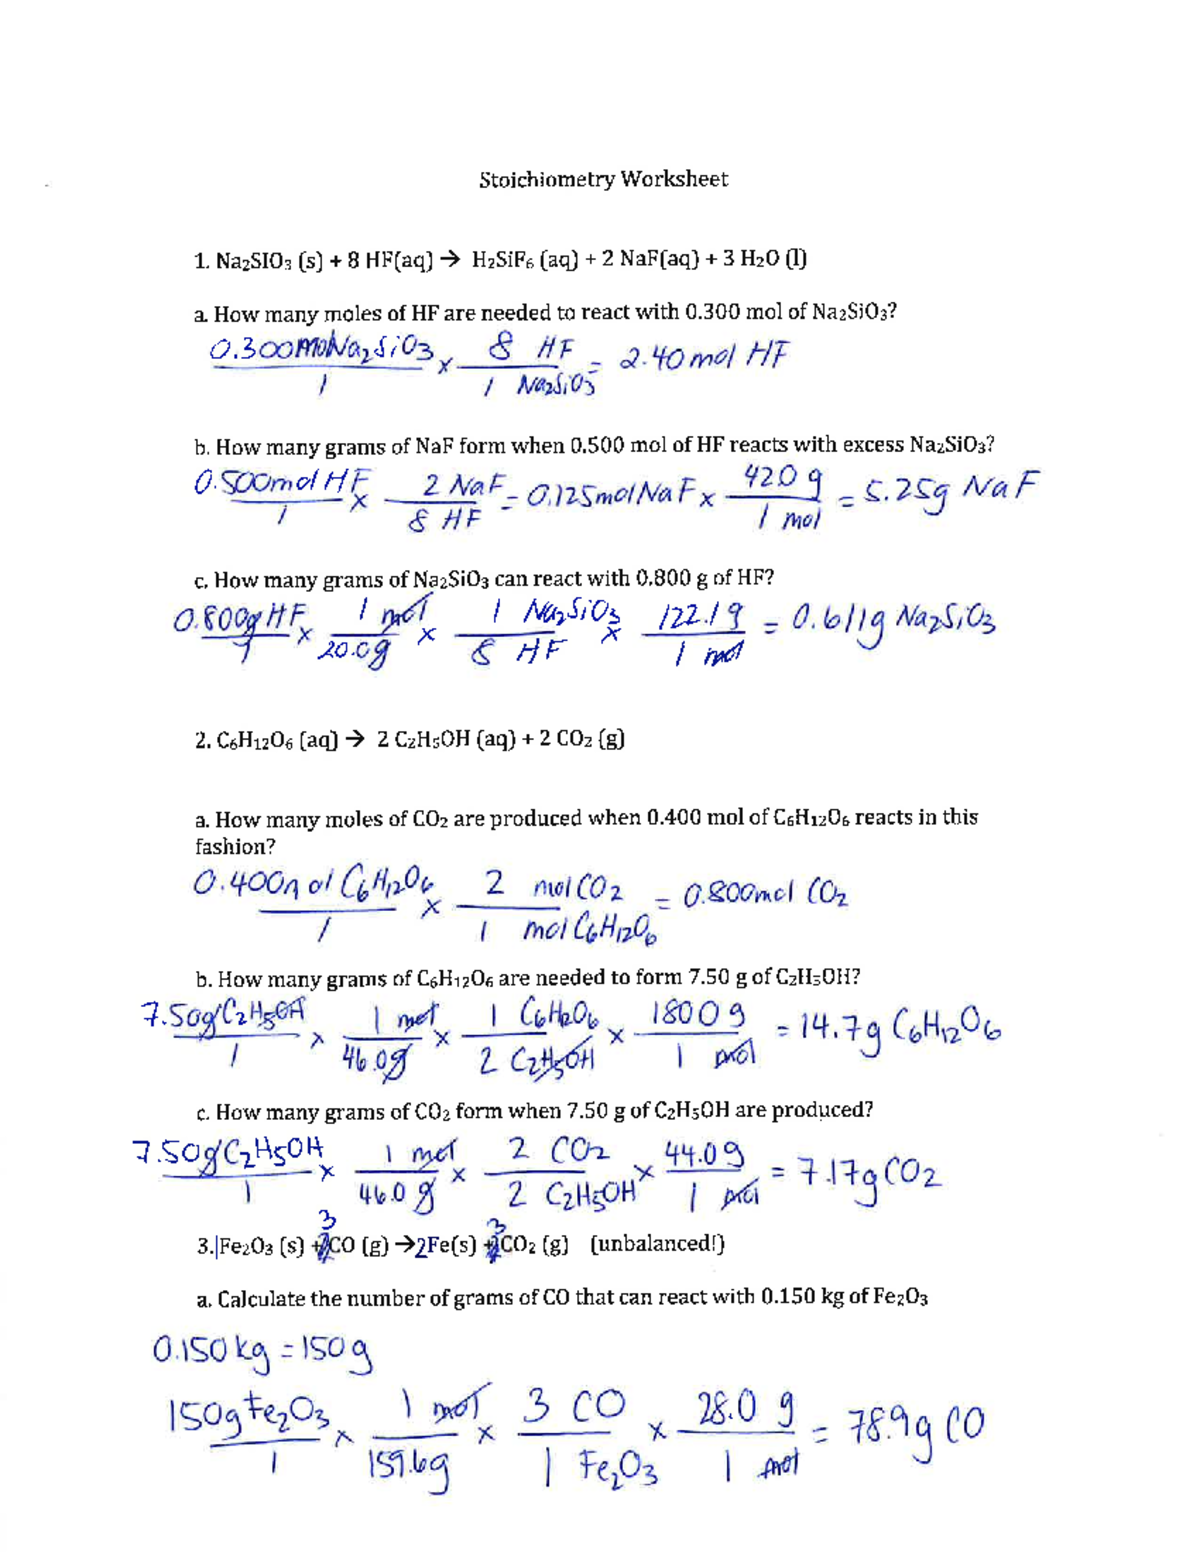 Stoichiometry Worksheet
1. Na₂SIO₃ (s) + 8 HF(aq) → H₂SiF₆ (aq) + 2 NaF(aq) + 3 H₂O (l)
a. How many moles of HF are needed to react with 0.300 mol of Na₂SiO₃?
0.300molNa₂SiO₃ × 8 HF = 2.40 mol HF
1 1 Na₂SiO₃
b. How many grams of NaF form when 0.500 mol of HF reacts with excess Na₂SiO₃?
0.500mol HF × 2 NaF = 0.125mol NaF × 42.0 g = 5.25g NaF
1 8 HF 1 mol
c. How many grams of Na₂SiO₃ can react with 0.800 g of HF?
0.800g HF × 1 mol × 1 Na₂SiO₃ × 122.1 g = 0.611g Na₂SiO₃
1 20.0g 8 HF 1 mol
2. C₆H₁₂O₆ (aq) → 2 C₂H₅OH (aq) + 2 CO₂ (g)
a. How many moles of CO₂ are produced when 0.400 mol of C₆H₁₂O₆ reacts in this
fashion?
0.400mol C₆H₁₂O₆ × 2 mol CO₂ = 0.800mol CO₂
1 1 mol C₆H₁₂O₆
b. How many grams of C₆H₁₂O₆ are needed to form 7.50 g of C₂H₅OH?
7.50g C₂H₅OH × 1 mol × 1 C₆H₁₂O₆ × 180.0 g = 14.7g C₆H₁₂O₆
1 46.0g 2 C₂H₅OH 1 mol
c. How many grams of CO₂ form when 7.50 g of C₂H₅OH are produced?
7.50g C₂H₅OH × 1 mol × 2 CO₂ × 44.0 g = 7.17g CO₂
1 46.0 g 2 C₂H₅OH 1 mol
3. Fe₂O₃ (s) + 3CO (g) → 2Fe(s) + 3CO₂ (g) (unbalanced!)
a. Calculate the number of grams of CO that can react with 0.150 kg of Fe₂O₃
0.150 kg = 150 g
150g Fe₂O₃ × 1 mol × 3 CO × 28.0 g = 78.9g CO
1 159.6g 1 Fe₂O₃ 1 mol